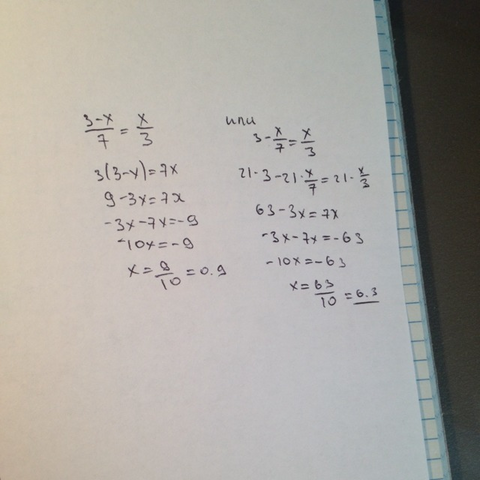 3-x/7 = x/3
3(3-x)=7x
9-3x=7x
-3x-7x=-9
-10x=-9
x=9/10=0.9
или
3-x/7=x/3
21·3-21·x/7=21·x/3
63-3x=7x
-3x-7x=-63
-10x=-63
x=63/10=6.3